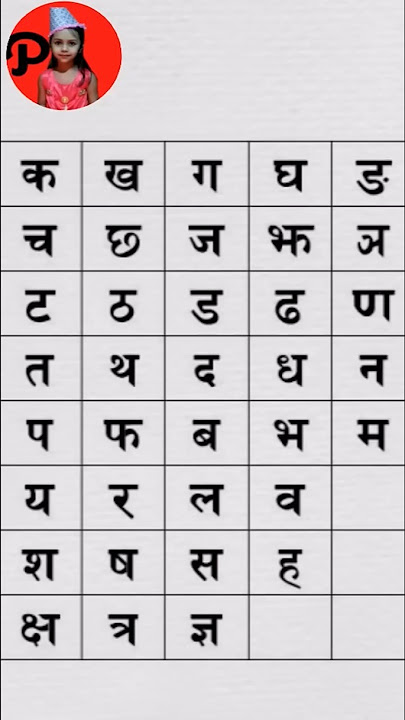 P
क ख ग घ ङ
च छ ज झ ञ
ट ठ ड ढ ण
त थ द ध न
प फ ब भ म
य र ल व
श ष स ह
क्ष त्र ज्ञ